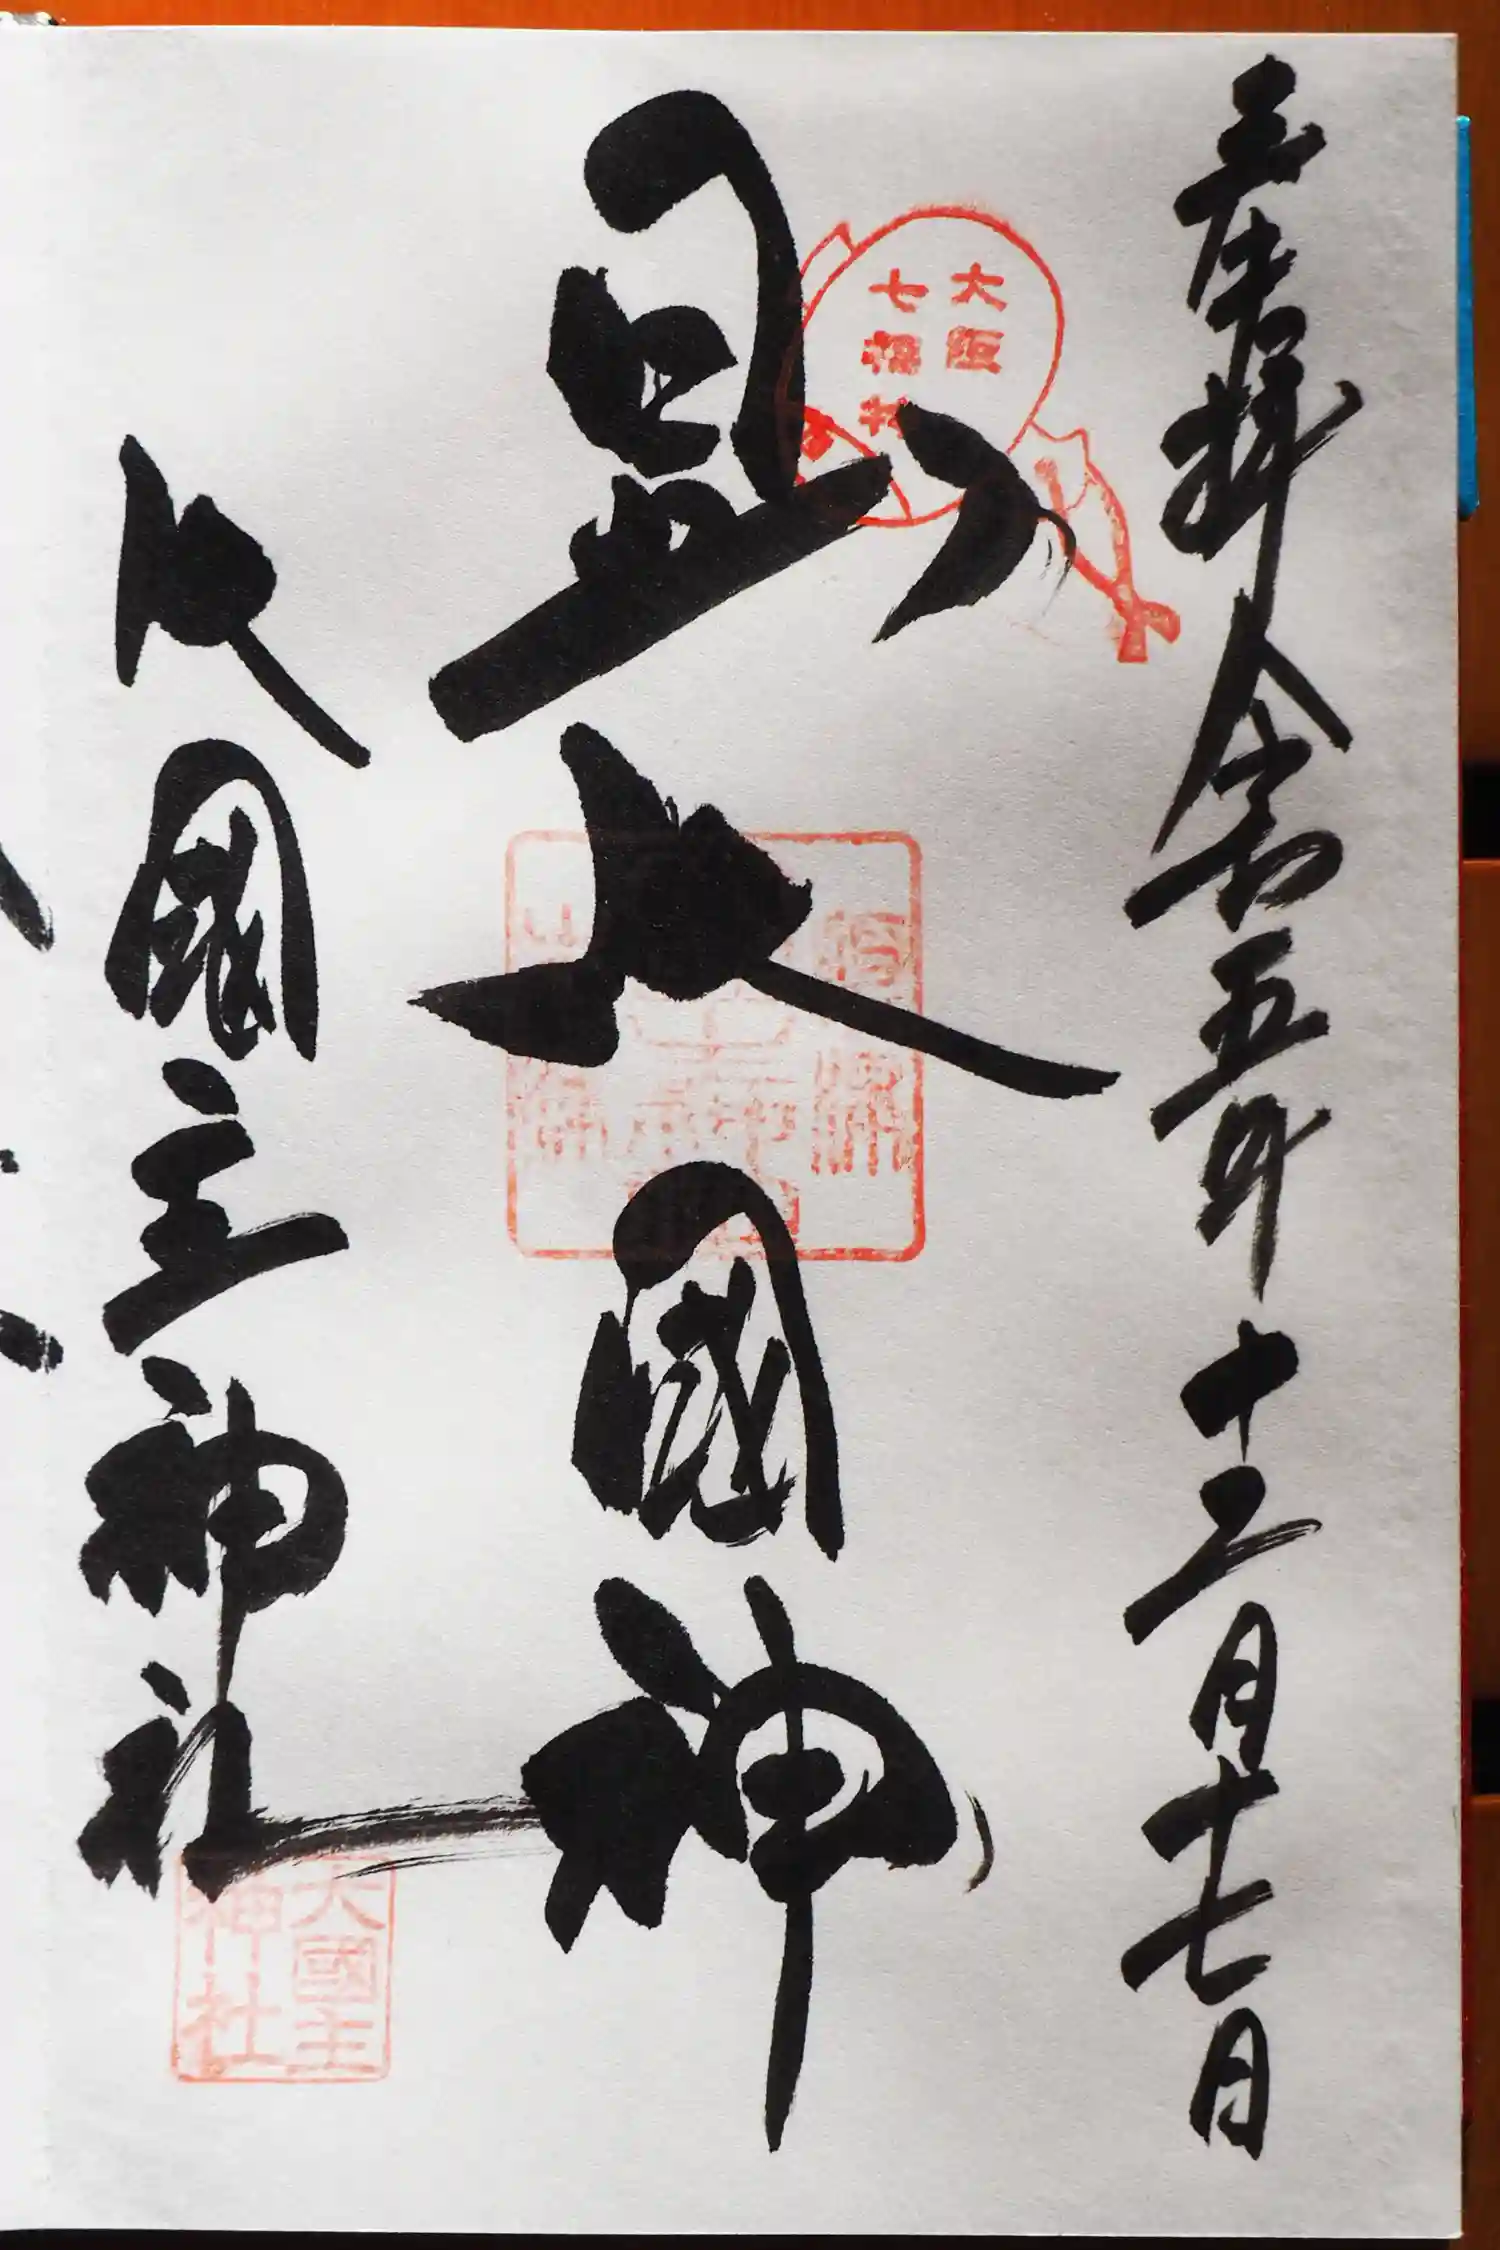 拝 令和五年十二月十七日
大阪
七福神
大國神
大國主神社
大國主
神社